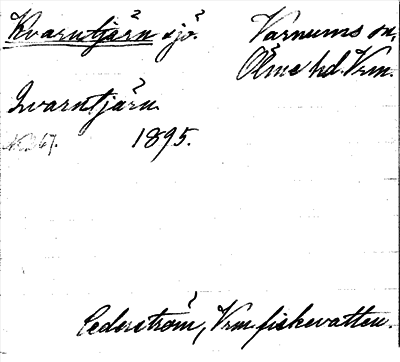 Kvarntjärn sjö. Varnums sn.
Ölme hd. Vrm.
Qvarntjärn.
1895.
Cederström, Vrm. fiskevatten.